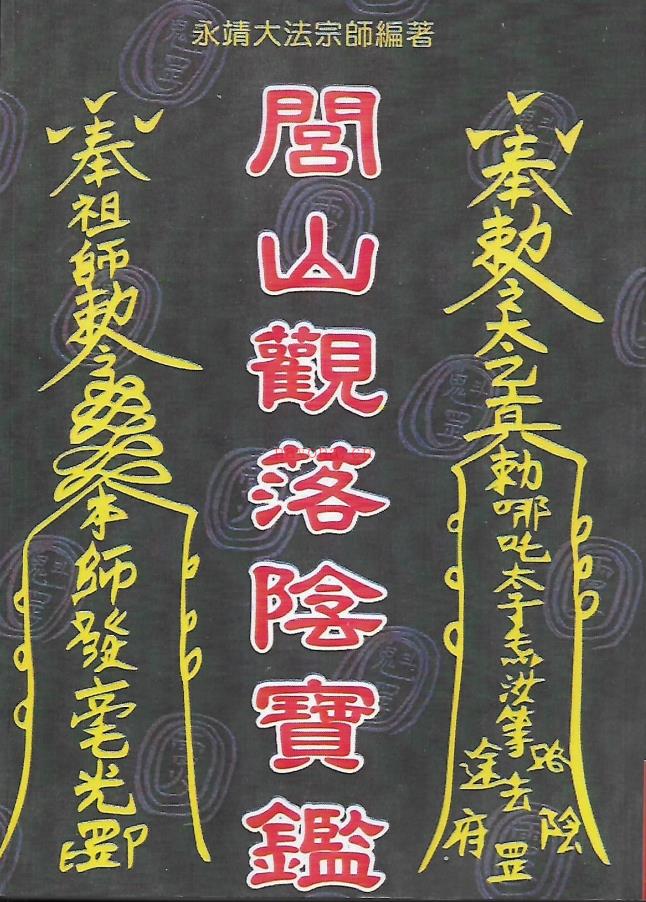 永靖大法宗師編著
奉勅令太乙真勅哪吒太子為汝等路途去陰府罡
閭山觀落陰寶鑑
奉祖師勅令本師發毫光罡印